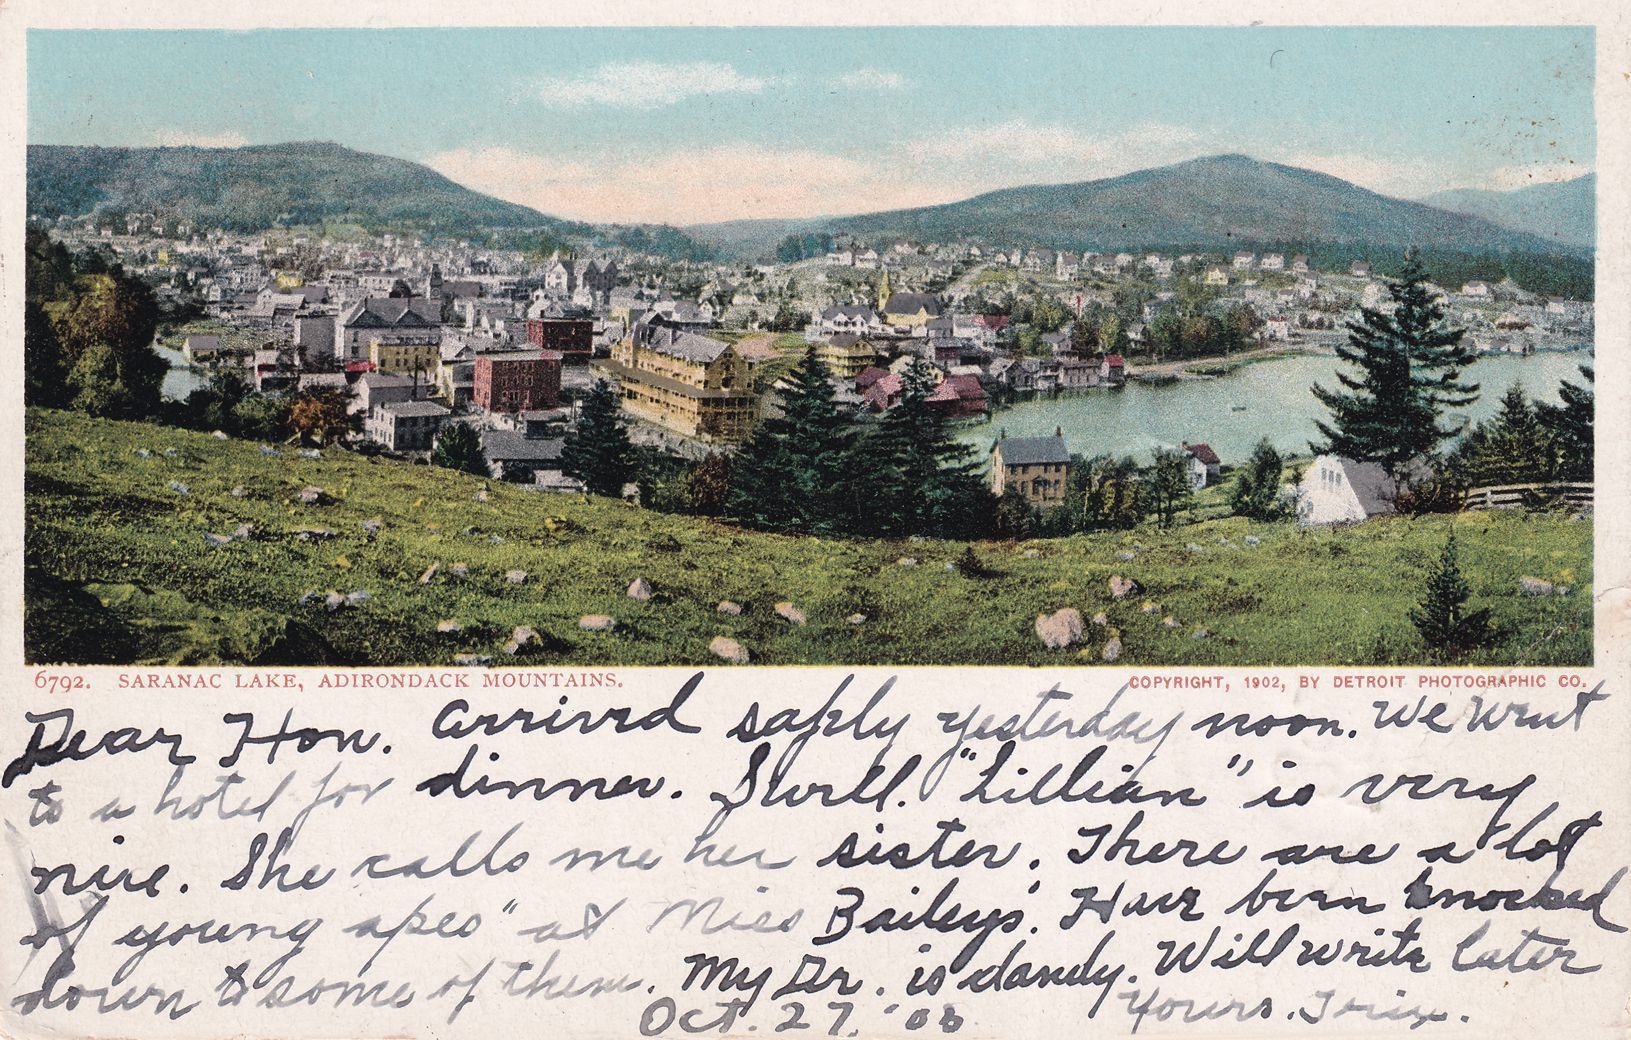 6792. SARANAC LAKE, ADIRONDACK MOUNTAINS.
COPYRIGHT, 1902, BY DETROIT PHOTOGRAPHIC CO.
Dear Hon. Arrived safely yesterday noon. We went
to a hotel for dinner. Swell. "Lillian" is very
nice. She calls me her sister. There are a "lot
of young apes" at Miss Baileys'. Have been knocked
down to some of them. My Dr. is dandy. Will write later
Oct. 27, '05 Yours. Trix.